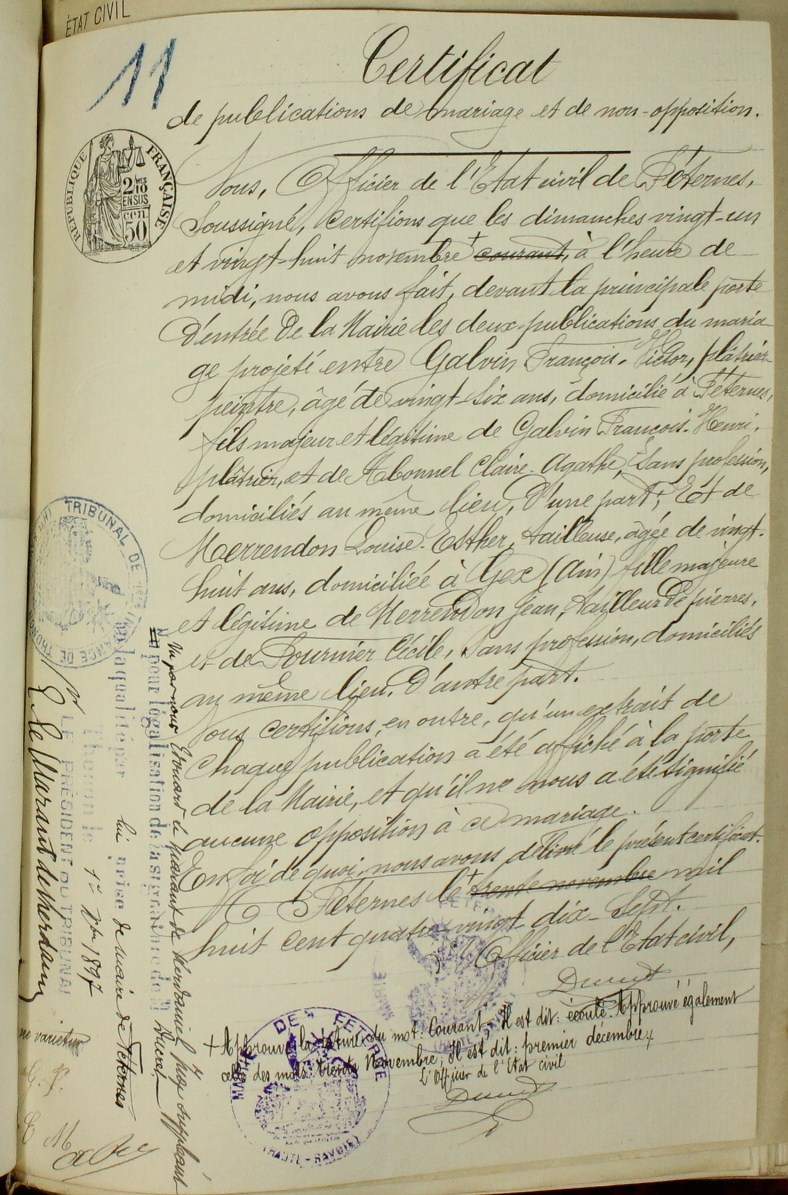 ÉTAT CIVIL
11
Certificat
de publications de mariage et de non-opposition.
RÉPUBLIQUE FRANÇAISE
2/10
EN SUS
50
Nous, Officier de l'Etat civil de Féternes,
soussigné, certifions que les dimanches vingt-un
et vingt-huit novembre + courant, à l'heure de
midi, nous avons fait, devant la principale porte
d'entrée de la Mairie les deux publications du maria
ge projeté entre Galvin François-Victor, plâtrier
peintre, âgé de vingt-six ans, domicilié à Féternes,
fils majeur et légitime de Galvin François-Henri,
plâtrier, et de Abonnel Claire-Agathe, sans profession,
domiciliés au même lieu, d'une part; Et de
Merrendon Louise-Esther, tailleuse, âgée de vingt-
huit ans, domiciliée à Gex (Ain) fille majeure
et légitime de Merrendon Jean, tailleur de pierres,
et de Fournier Cécile, sans profession, domiciliés
au même lieu, d'autre part.
Nous certifions, en outre, qu'un extrait de
chaque publication a été affiché à la porte
de la Mairie, et qu'il ne nous a été signifié
aucune opposition à ce mariage.
En foi de quoi, nous avons délivré le présent certificat.
A Féternes le + trente novembre mil
huit cent quatre vingt-dix-sept.
L'Officier de l'Etat civil,
+ Approuvé la rature du mot: Courant; Il est dit: écoulé. Approuvé également
celle des mots: trente Novembre; Il est dit: premier décembre
L'Officier de l'Etat civil
MAIRIE DE FETERNE
(HAUTE-SAVOIE)
TRIBUNAL DE
Vu par nous Edouard Le Marant de Kerdaniel juge suppléant
pour légalisation de la signature de M Ducret
en la qualité par lui prise de maire de Féternes
Thonon le 1er Xbre 1897
pr LE PRÉSIDENT DU TRIBUNAL
E Le Marant de Kerdaniel
ne varietur
G. F.
E M